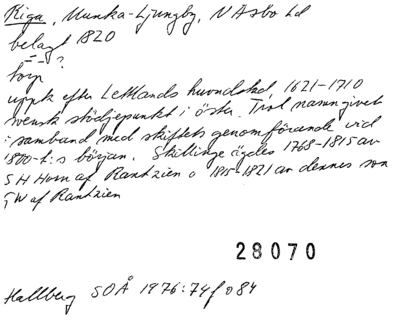 Riga, Munka-Ljungby, N Åsbo hd
belagt 1820
torp
uppk efter Lettlands huvudstad, 1621-1710
svensk stödjepunkt i öster. Trol namngivet
i samband med skiftets genomförande vid
1800-t:s början. Skillinge ägdes 1768-1815 av
S H Horn af Rantzien o 1815-1821 av dennes son
G W af Rantzien
28070
Hallberg SOÅ 1976:74f o 84